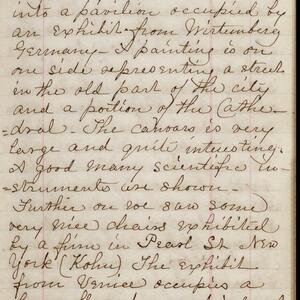 into a pavilion occupied by
an exhibit from Wirtemberg
Germany - A painting is on
one side representing a street
in the old part of the city
and a portion of the Cathe-
=dral - The canvars is very
large and quite interesting.
A good many scientific in-
struments are shown -
Further on we saw some
very nice chairs exhibited
by a firm in Pearl St. New
York (Kohn) The exhibit
from Venice occupies a